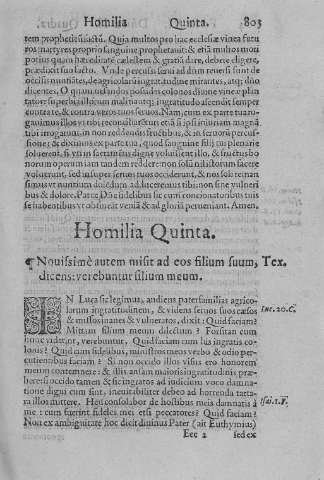 Homilia Quinta. 803
tem prophetis suis tu. Quia multos pro hac ecclesiæ vinea futu
ros martyres proprio sanguine prophetauit: & etiã multos mori
potius quam hæreditatẽ cælestem & gratiã dare, debere eligere,
præduxit suo facto. Vnde percussi serui ad dñm reuersi sunt de
occisis nuntiantes, de agricolarum iniquitate, miserantes, atq;
dicentes. O quam
tatore superbi illorum malitia atq; ingratitudo ascendit semper
contra te, & contra veros tuos seruos. Nam, cum ex parte
gauimus illos vt tibi reconcilientur: etsi à ipsi iniuriam magnã
tibi irrogarunt in non reddendis fructibus, & in seruorũ percus-
sione; & diximus ex parte tua, quod sanguine filij tui plenarie
soluerent, si vti in satiandis digne voluissent illo, & fructus bo
norum operum iam tandem reddere: non solũ nihil istorum facere
voluerunt, sed insuper seruos tuos occiderunt, & nos soli rema
simus vt nuntium dolendum adduceremus tibi: non sine vulneri
bus & dolore. Patet Dñe fidelibus sic cum concionatoribus tuis
se habentibus vt obtineãt veniã & ad gloriã perueniant. Amen.
Homilia Quinta.
¶ Nouissimè autem misit ad eos filium suum, Tex.
dicens: verebuntur filium meum.
IN Luca sic legimus, audiens paterfamilias agrico-
larum ingratitudinem, & videns seruos suos cæsos Luc. 20. C.
& missos inanes & vulneratos, dixit: Quid faciam?
Mittam filium meum dilectum? Forsitan cum
hunc viderint, verebuntur. Quid faciam cum his ingratis co-
lonis? Quid cum fidelibus, ministros meos verbo & odio per-
cutientibus faciam? Si non occido illos vires ero honorem
meum contemnere: & illis ansam maioris ingratitudinis præ-
bere: si occido tamen & sic ingratos ad iudicium voco damna-
tione digni cum sint, ineuitabiliter debeo ad horrenda tarta-
ra illos mittere. Heu consolabor de hostibus meis damnatis à
me: cum fuerint fideles mei etsi peccatores? Quid faciam? Isai. 1. F.
Non ex ambiguitate hoc dicit diuinus Pater (ait Euthymius)
Eee 2 sed ex